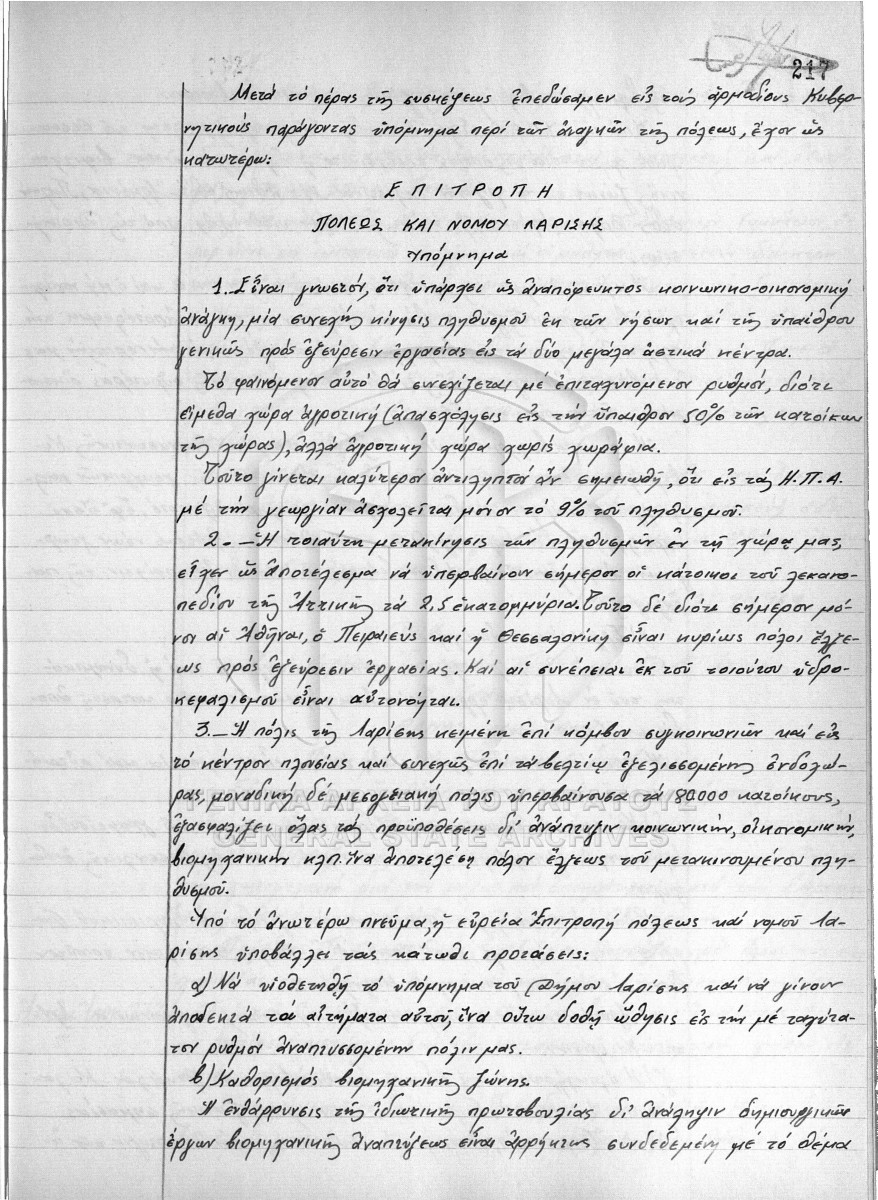 217
Μετά τό πέρας τῆς συσκέψεως ἐπεδώσαμεν εἰς τούς ἁρμοδίους Κυβερ-
νητικούς παράγοντας ὑπόμνημα περί τῶν ἀναγκῶν τῆς πόλεως, ἔχον ὡς
κατωτέρω:
ΕΠΙΤΡΟΠΗ
ΠΟΛΕΩΣ ΚΑΙ ΝΟΜΟΥ ΛΑΡΙΣΗΣ
Υπόμνημα
1. Εἶναι γνωστόν, ὅτι ὑπάρχει ὡς ἀναπόφευκτος κοινωνικο-οικονομική
ἀνάγκη, μία συνεχής κίνησις πληθυσμοῦ ἐκ τῶν νήσων καί τῆς ὑπαίθρου
γενικῶς πρός ἐξεύρεσιν ἐργασίας εἰς τά δύο μεγάλα ἀστικά κέντρα.
Τό φαινόμενον αὐτό θά συνεχίζεται μέ ἐπιταχυνόμενον ρυθμόν, διότι
εἴμεθα χώρα ἀγροτική (ἀπασχόλησις εἰς τήν ὕπαιθρον 50% τῶν κατοίκων
τῆς χώρας), ἀλλά ἀγροτική χώρα χωρίς χωράφια.
Τοῦτο γίνεται καλύτερον ἀντιληπτόν ἄν σημειωθῇ, ὅτι εἰς τάς Η.Π.Α.
μέ τήν γεωργίαν ἀσχολεῖται μόνον τό 9% τοῦ πληθυσμοῦ.
2.– Ἡ τοιαύτη μετακίνησις τῶν πληθυσμῶν ἐν τῇ χώρᾳ μας,
εἶχεν ὡς ἀποτέλεσμα νά ὑπερβαίνουν σήμερον οἱ κάτοικοι τοῦ λεκανο-
πεδίου τῆς Ἀττικῆς τά 2,5 ἑκατομμύρια. Τοῦτο δέ διότι σήμερον μό-
νον αἱ Ἀθῆναι, ὁ Πειραιεύς καί ἡ Θεσσαλονίκη εἶναι κυρίως πόλοι ἕλξε-
ως πρός ἐξεύρεσιν ἐργασίας. Καί αἱ συνέπειαι ἐκ τοῦ τοιούτου ὑδρο-
κεφαλισμοῦ εἶναι αὐτονόηται.
3.– Η πόλις τῆς Λαρίσης κειμένη ἐπί κόμβου συγκοινωνιῶν καί εἰς
τό κέντρον πλησίας καί συνεχῶς ἐπί τά βελτίω ἐξελισσομένης ἐνδοχώ-
ρας, μοναδική δέ μεσογειακή πόλις ὑπερβαίνουσα τά 80.000 κατοίκους,
ἐξασφαλίζει ὅλας τάς προϋποθέσεις δι' ἀνάπτυξιν κοινωνικήν, οἰκονομικήν,
βιομηχανικήν κλπ. ἵνα ἀποτελέσῃ πόλον ἕλξεως τοῦ μετακινουμένου πλη-
θυσμοῦ.
Ὑπό τό ἀνωτέρω πνεῦμα, ἡ εὐρεία Ἐπιτροπή πόλεως καί νομοῦ Λα-
ρίσης ὑποβάλλει τάς κάτωθι προτάσεις:
α) Νά υἱοθετηθῇ τό ὑπόμνημα τοῦ Δήμου Λαρίσης καί νά γίνουν
ἀποδεκτά τά αἰτήματα αὐτοῦ, ἵνα οὕτω δοθῇ ὤθησις εἰς τήν μέ ταχύτα-
τον ρυθμόν ἀναπτυσσομένην πόλιν μας.
β) Καθορισμός βιομηχανικῆς ζώνης.
Ἡ ἐνθάρρυνσις τῆς ἰδιωτικῆς πρωτοβουλίας δι' ἀνάληψιν δημιουργικῶν
ἔργων βιομηχανικῆς ἀναπτύξεως εἶναι ἀρρήκτως συνδεδεμένη μέ τό θέμα
ΓΕΝΙΚΑ ΑΡΧΕΙΑ ΤΟΥ ΚΡΑΤΟΥΣ
GENERAL STATE ARCHIVES